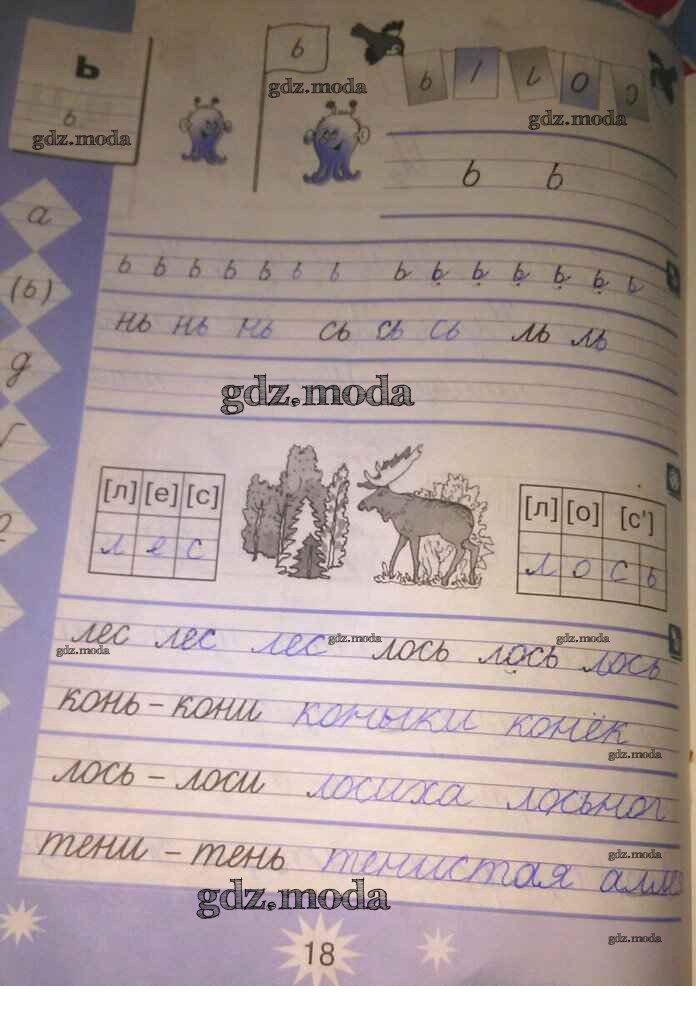 ь
ь
gdz.moda
ь
gdz.moda
gdz.moda
ь ь
а
(ь)
д
ь ь ь ь ь ь ь ь ь ь ь ь ь ь
нь нь нь сь сь сь ль ль
gdz.moda
[л] [е] [с]
л е с
[л] [о] [с']
л о с ь
лес лес лес лось лось лось
gdz.moda gdz.moda gdz.moda
конь – кони коньки конёк
gdz.moda
лось – лоси лосиха
тени – тень тенистая
gdz.moda
gdz.moda
gdz.moda
18